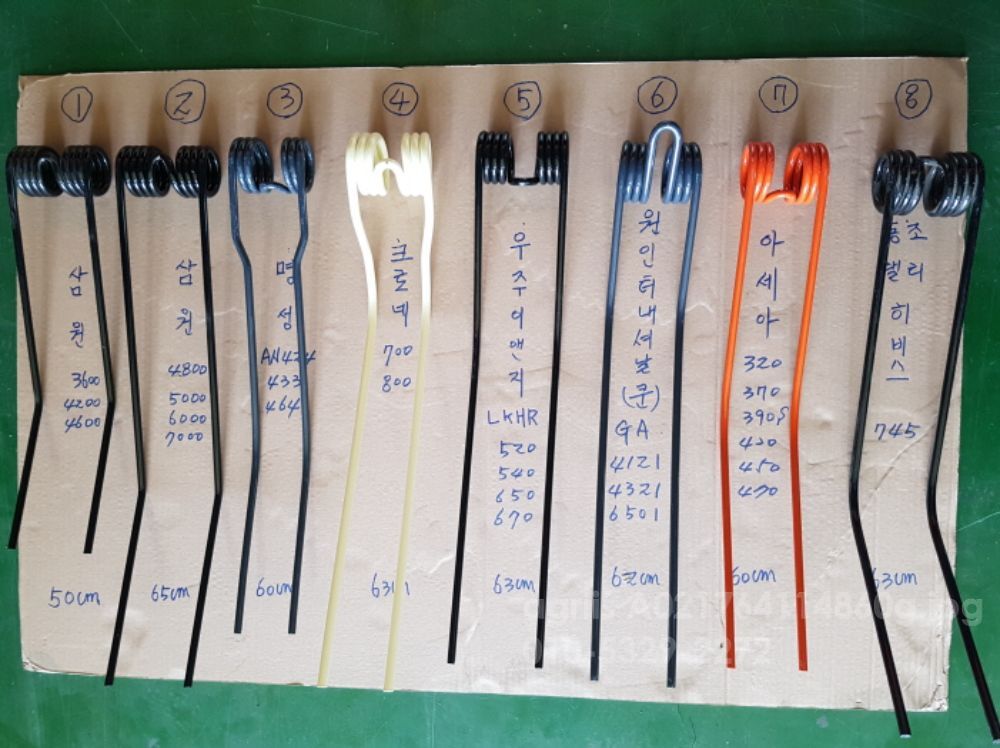 ①
삼원
3600
4200
4600
50cm
②
삼원
4800
5000
6000
7000
65cm
③
명성
AW424
433
464
60cm
④
크로넥
700
800
63cm
⑤
우주이앤지
LKHR
520
540
650
670
63cm
⑥
원인터내셔날
(쿤)
GA
4121
4321
6501
62cm
⑦
아세아
320
370
390S
420
450
470
60cm
⑧
죠리
델
히비스
745
63cm